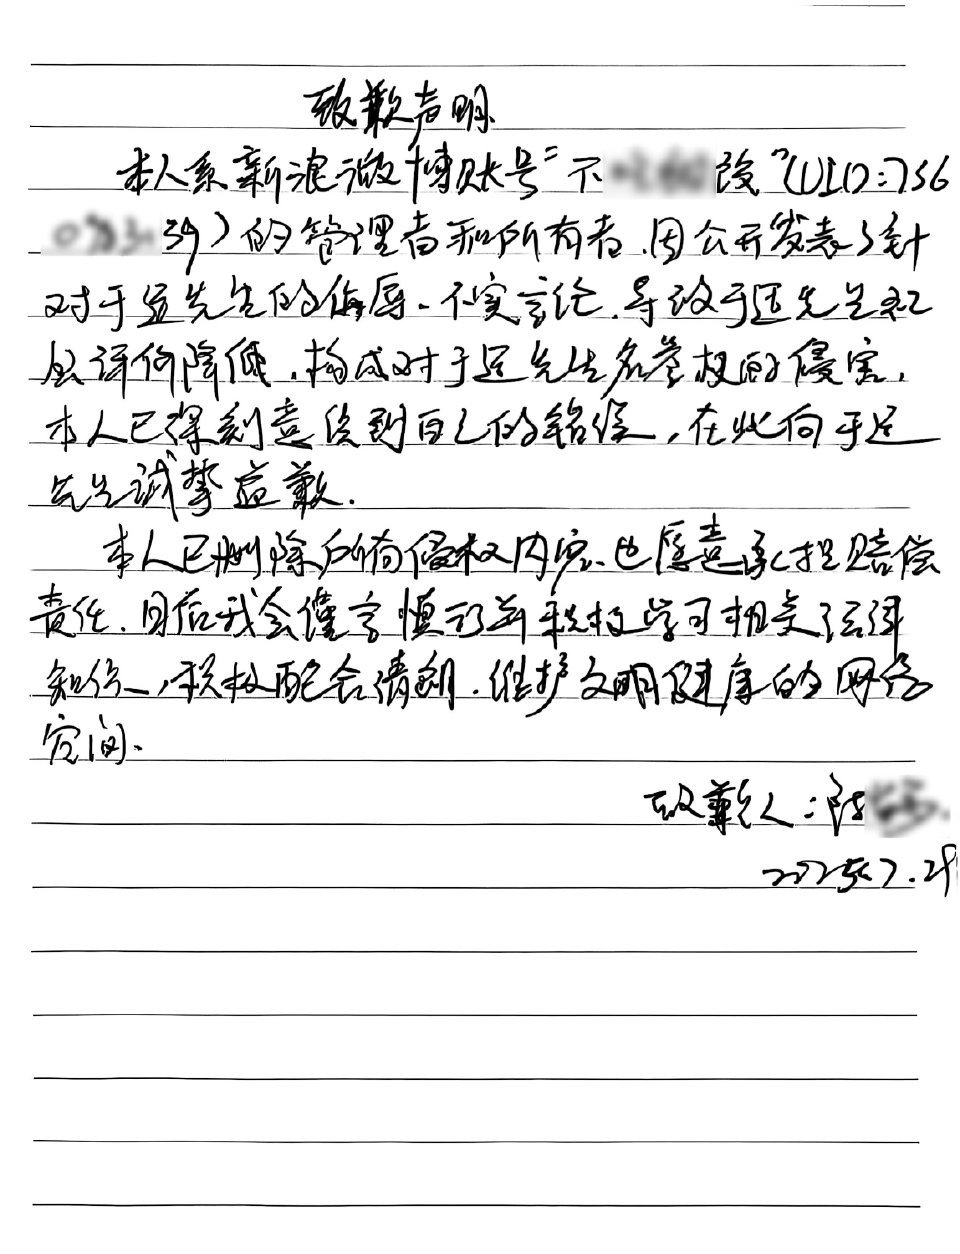 致歉声明
本人系新浪微博账号“不 改”(UID:756
39)的管理者和所有者.因公开发表了针
对于适先生的侮辱、不实言论.导致于适先生社
会评价降低.构成对于适先生名誉权的侵害,
本人已深刻意识到自己的错误,在此向于适
先生诚挚道歉.
本人已删除所有侵权内容、也愿意承担赔偿
责任.日后我会谨言慎行并积极学习相关法律
知识,积极配合清朗.维护文明健康的网络
空间.
致歉人:陈
2025.7.29